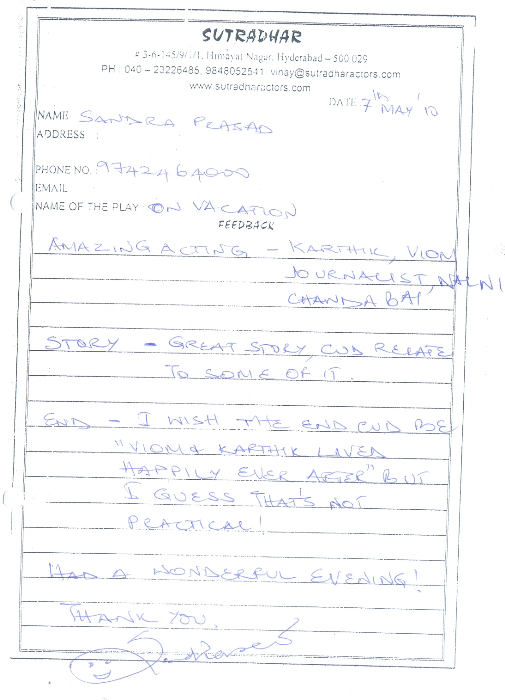 SUTRADHAR
# 3-6-145/9/1/1, Himayat Nagar, Hyderabad - 500 029
PH : 040 - 23226485, 9848052541 vinay@sutradharactors.com
www.sutradharactors.com
DATE 7th MAY '10
NAME SANDRA PRASAD
ADDRESS :
PHONE NO. 9742464000
EMAIL
NAME OF THE PLAY ON VACATION
FEEDBACK
AMAZING ACTING - KARTHIK, VIOM
JOURNALIST, NALNI
CHANDA BAI
STORY - GREAT STORY, CUD RELATE
TO SOME OF IT.
END - I WISH THE END CUD BE
"VIOM & KARTHIK LIVED
HAPPILY EVER AFTER" BUT
I GUESS THAT'S NOT
PRACTICAL!
HAD A WONDERFUL EVENING!
THANK YOU,